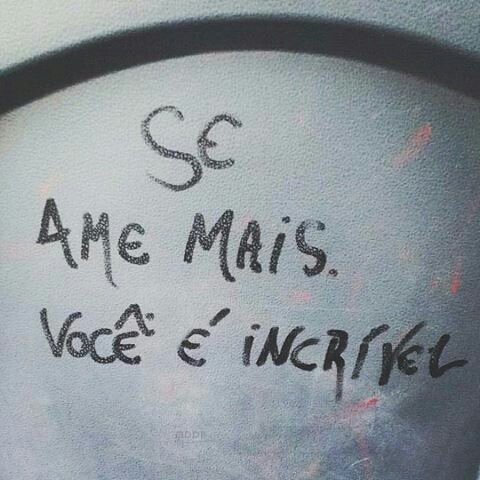 SE
AME MAIS.
VOCÊ É iNCRÍVEL